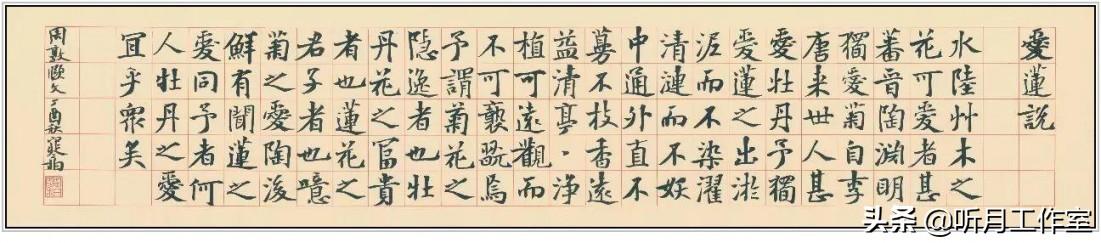 愛蓮說
水陸艸木之
花可愛者甚
蕃晋陶渊明
獨愛菊自李
唐来世人甚
愛牡丹予獨
愛蓮之出淤
泥而不染濯
清漣而不妖
中通外直不
蔓不枝香遠
益清亭·净
植可遠觀而
不可褻翫焉
予謂菊花之
隐逸者也牡
丹花之富貴
者也蓮花之
君子者也噫
菊之愛陶後
鮮有聞蓮之
愛同予者何
人牡丹之愛
宜乎衆矣
周敦颐文丁酉秋
头条 @听月工作室